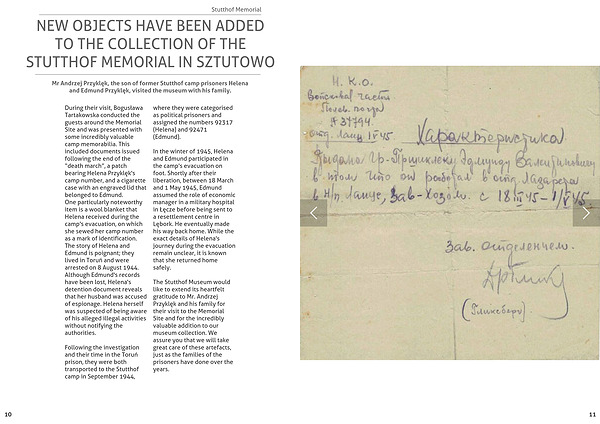 Stutthof Memorial
NEW OBJECTS HAVE BEEN ADDED
TO THE COLLECTION OF THE
STUTTHOF MEMORIAL IN SZTUTOWO
Mr Andrzej Przyklęk, the son of former Stutthof camp prisoners Helena
and Edmund Przyklęk, visited the museum with his family.
During their visit, Bogusława
Tartakowska conducted the
guests around the Memorial
Site and was presented with
some incredibly valuable
camp memorabilia. This
included documents issued
following the end of the
"death march", a patch
bearing Helena Przyklęk's
camp number, and a cigarette
case with an engraved lid that
belonged to Edmund.
One particularly noteworthy
item is a wool blanket that
Helena received during the
camp's evacuation, on which
she sewed her camp number
as a mark of identification.
The story of Helena and
Edmund is poignant; they
lived in Toruń and were
arrested on 8 August 1944.
Although Edmund's records
have been lost, Helena's
detention document reveals
that her husband was accused
of espionage. Helena herself
was suspected of being aware
of his alleged illegal activities
without notifying the
authorities.
Following the investigation
and their time in the Toruń
prison, they were both
transported to the Stutthof
camp in September 1944,
where they were categorised
as political prisoners and
assigned the numbers 92317
(Helena) and 92471
(Edmund).
In the winter of 1945, Helena
and Edmund participated in
the camp's evacuation on
foot. Shortly after their
liberation, between 18 March
and 1 May 1945, Edmund
assumed the role of economic
manager in a military hospital
in Łęcze before being sent to
a resettlement centre in
Lębork. He eventually made
his way back home. While the
exact details of Helena's
journey during the evacuation
remain unclear, it is known
that she returned home
safely.
The Stutthof Museum would
like to extend its heartfelt
gratitude to Mr. Andrzej
Przyklęk and his family for
their visit to the Memorial
Site and for the incredibly
valuable addition to our
museum collection. We
assure you that we will take
great care of these artefacts,
just as the families of the
prisoners have done over the
years.
10
Н. К. О.
Войсковая часть
Полев. почта
37794
Характеристика
Эдмунду Валентиновичу
в том что он работал в отд. Лазарета
Зав-Хозом. с 18
Зав. отделением.
11